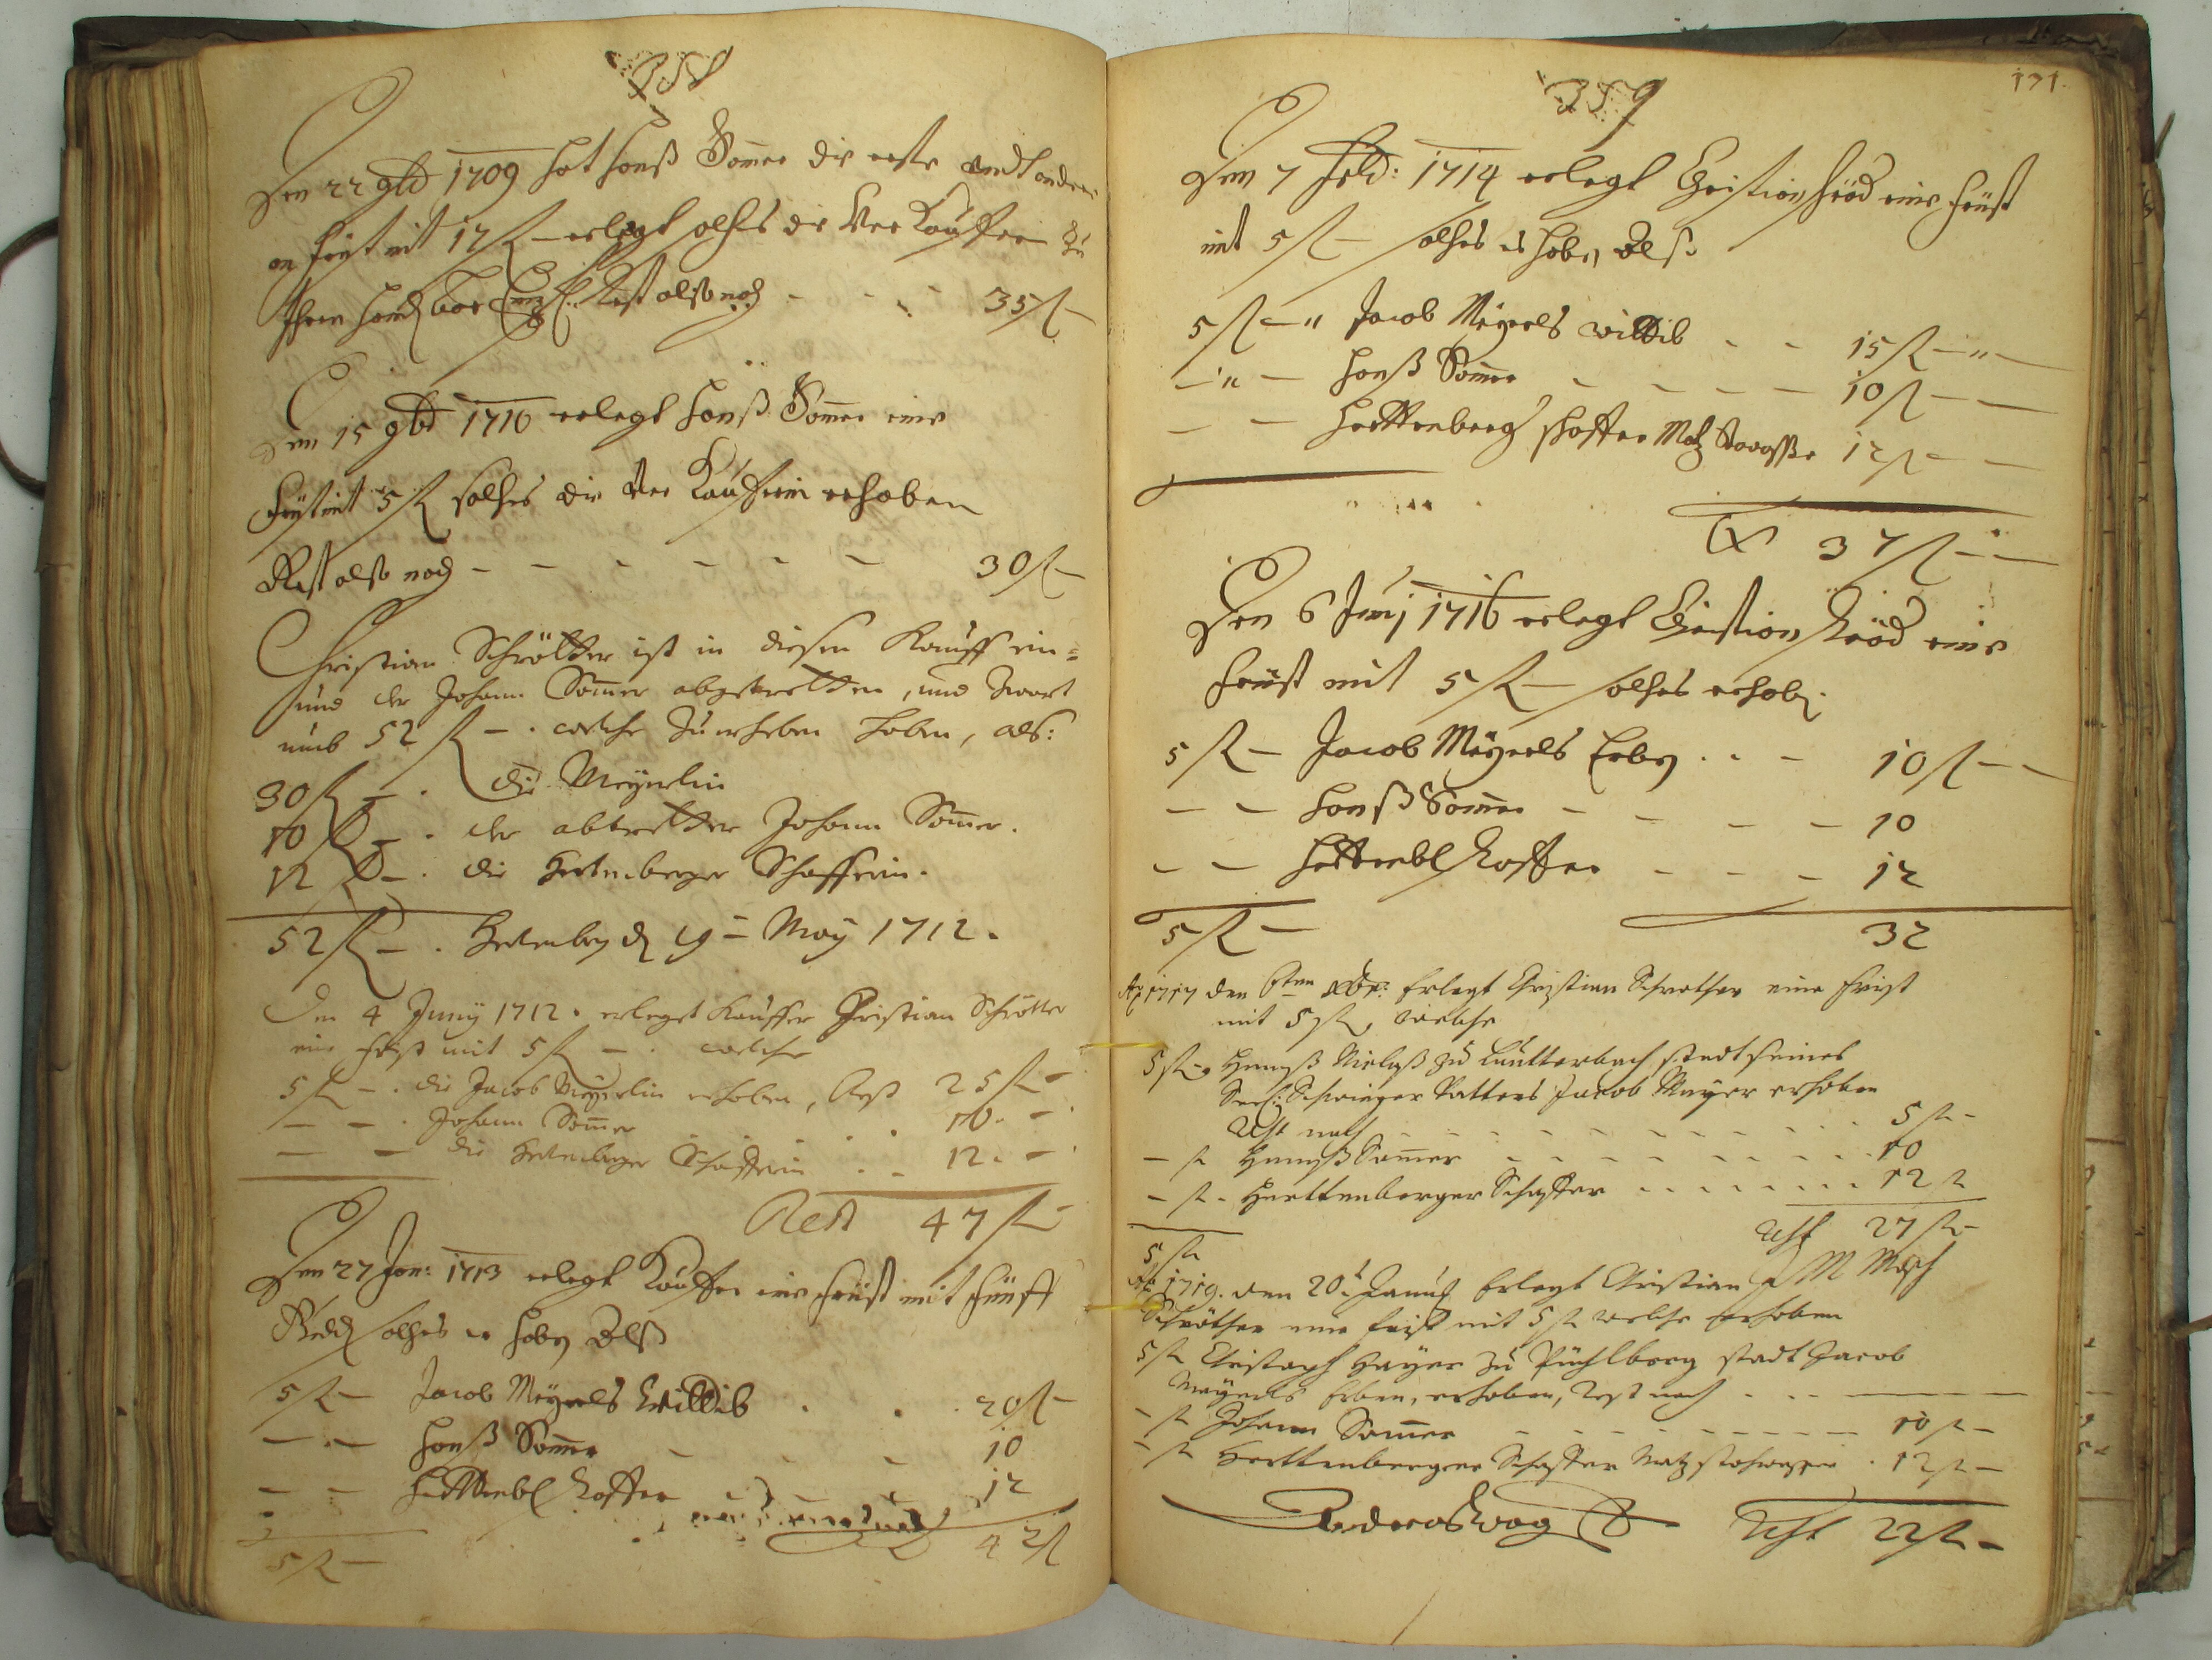 358
Den 22 9bd 1709 hat Hanß Somer die erste andt ander
an frist mit 17 fl — erlegt solches die Ver Kauffer Zu
Ihren Hand Rest alßo noch - - - 35 fl —
Den 15 9bd 1710 erlegt Hanß Somer eine
Frist mit 5 fl solches die Ver Kaufferin erhoben
Rest alßo noch - - - - - - 30 fl —
Christian Schrötter ist in diesen Kauff ein=
und der Johann Somer abgetretten, und Zwart
umb 52 fl — . welche Zu erheben haben, als:
30 fl — . die Meyerlin
10 fl — . der abtretter Johann Somer.
12 fl — . die Hertenberger Schafferin.
52 fl — . Hertenberg d 19 — May 1712.
Den 4 Juny 1712. erleget Kauffer Christian Schrötter
eine frist mit 5 fl — . welche
5 fl — . die Jacob Meyerlin erhoben, Rest 25 fl —
— — . Johann Somer . . . . 10. —
— — die Hertenberger Schafferin . . - 12. —
Rest 47 fl —
Den 27 Jan: 1713 erlegt Kauffer eine früst mit fünff
solches er haben Alß
5 fl — Jacob Meyerls Wittib . . . 20 fl —
— . — Hanß Somer - - - 10
— — Herttenbl Schaffer - - - 12
5 fl — 42 fl
359
171.
Den 7 Feb: 1714 erlegt Christian Schröd eine früst
mit 5 fl — solches er haben Alß
5 fl — " Jacob Meyerls wittib - - 15 fl — " —
— " — Hanß Somer - - - - 10 fl — —
— — Herttenberg schaffer Matz 12 fl — —
37 fl — —
Den 6 Juny 1716 erlegt Christian Schröd eine
früst mit 5 fl — solches erhob
5 fl — Jacob Meyerls Erben . . - 10 fl — —
— — Hanß Somer - - - - 10
— — Herttenbl Schaffer - - - 12
5 fl — 32
Ao 1717 den 6ten xbr: Erlegt Christian Schrötter eine frist
mit 5 fl, welche
5 fl — Hannß Niclaß zu Lautterbach stadt seines
Seel: Schwieger Vatters Jacob Mayer erhoben
Rest noch - - - - - - - - 5 fl —
— fl Hannß Somer - - - - - - - 10
— fl - Herttenberger Schaffer - - - - - - 12 fl
Rest 27 fl —
5 fl
Ao 1719. den 20 t Januy Erlegt Christian
Schrötter eine frist mit 5 fl welche erhoben
5 fl Christoph Hayer zu Pichlberg stadt Jacob
Mayerls Erben, erhoben, Rest noch - - - —
— fl Johann Somer - - - - - - - - - 10 fl —
— fl Herttenberger Schaffer Matz - 12 fl —
Rest 22 fl —